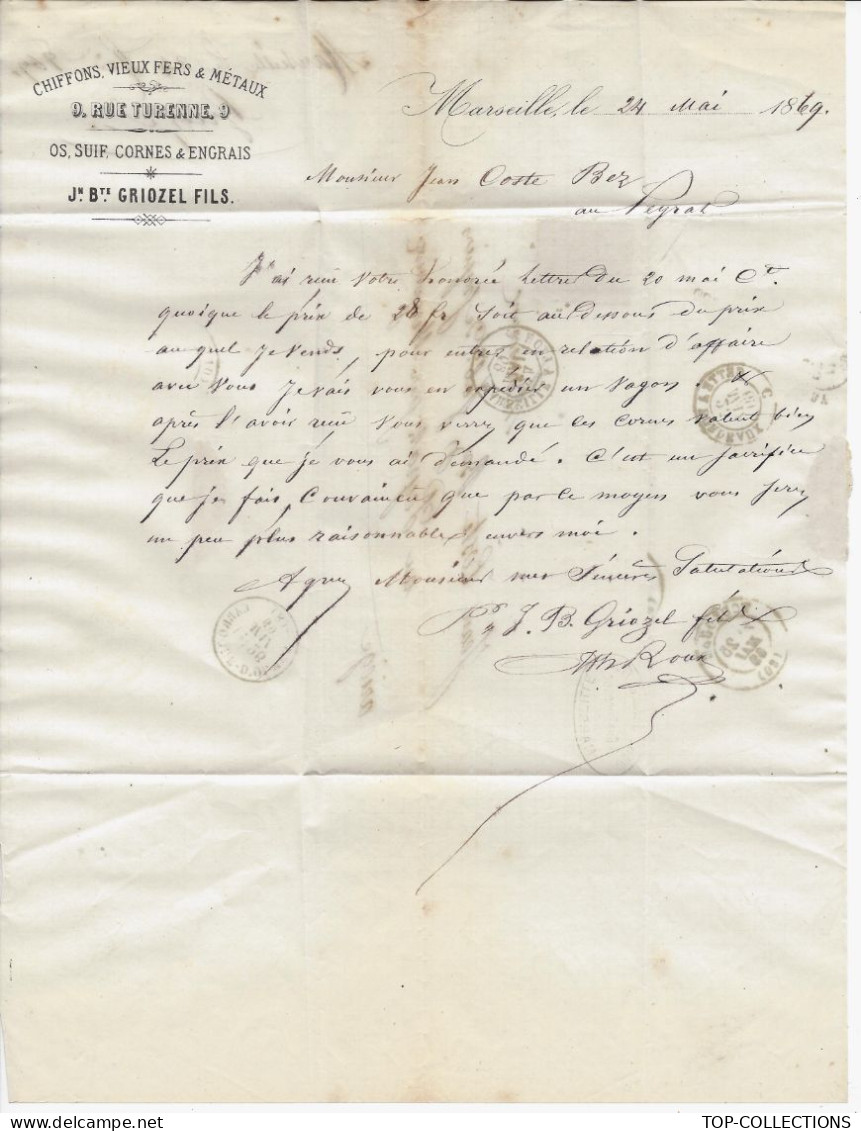 CHIFFONS, VIEUX FERS & MÉTAUX
9, RUE TURENNE, 9
OS, SUIF, CORNES & ENGRAIS
JN. BTE. GRIOZEL FILS.
Marseille, le 24 Mai 1869.
Monsieur Jean Coste Bez
au Peyrat
J'ai reçu votre honorée lettre du 20 mai Ct.
quoique le prix de 28 fr soit au dessous du prix
au quel je vends, pour entrer en relation d'affaire
avec vous je vais vous en expédier un vagon. &
après l'avoir reçu vous verrez que ces cornes valent bien
le prix que je vous ai demandé. C'est un sacrifice
que je fais, convaincu que par ce moyen vous serez
un peu plus raisonnable envers moi.
Agréez Monsieur mes sincères salutations
J. B. Griozel fils
Roux
TOP-COLLECTIONS